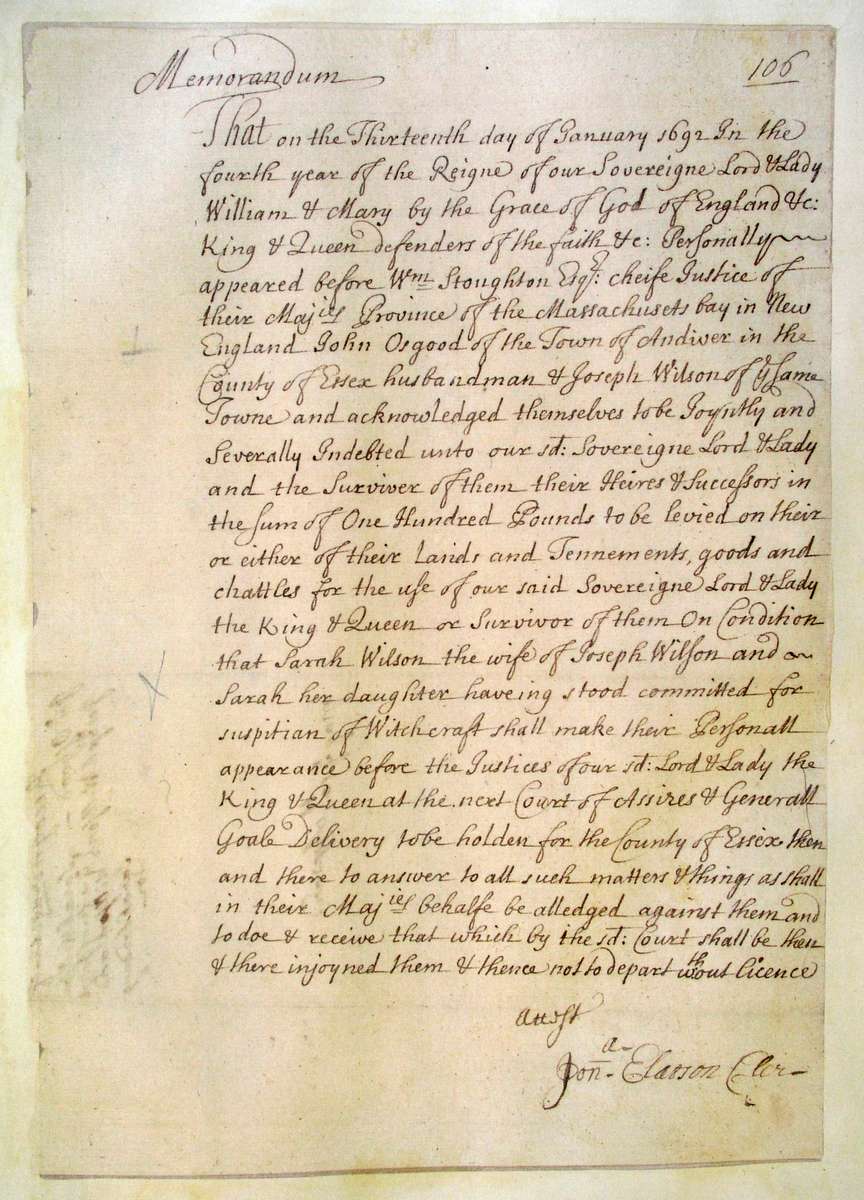 Memorandum
106
That on the Thirteenth day of January 1692 In the
fourth year of the Reigne of our Sovereigne Lord & Lady
William & Mary by the Grace of God of England &c:
King & Queen defenders of the faith &c: Personally
appeared before Wm Stoughton Esqr: cheife Justice of
their Majies Province of the Massachusets bay in New
England John Osgood of the Town of Andiver in the
County of Essex husbandman & Joseph Wilson of ye same
Towne and acknowledged themselves to be Joyntly and
Severally Indebted unto our sd: Sovereigne Lord & Lady
and the Surviver of them their Heires & Successors in
the sum of One Hundred Pounds to be levied on their
or either of their Lands and Tennements, goods and
chattles for the use of our said Sovereigne Lord & Lady
the King & Queen or Survivor of them On Condition
that Sarah Wilson the wife of Joseph Willson and
Sarah her daughter haveing stood committed for
suspitian of Witchcraft shall make their Personall
appearance before the Justices of our sd: Lord & Lady the
King & Queen at the next Court of Assizes & Generall
Goale Delivery to be holden for the County of Essex then
and there to answer to all such matters & things as shall
in their Majies behalfe be alledged against them and
to doe & receive that which by the sd: Court shall be then
& there injoyned them & thence not to depart without licence
Attest
Jona Elatson Cler